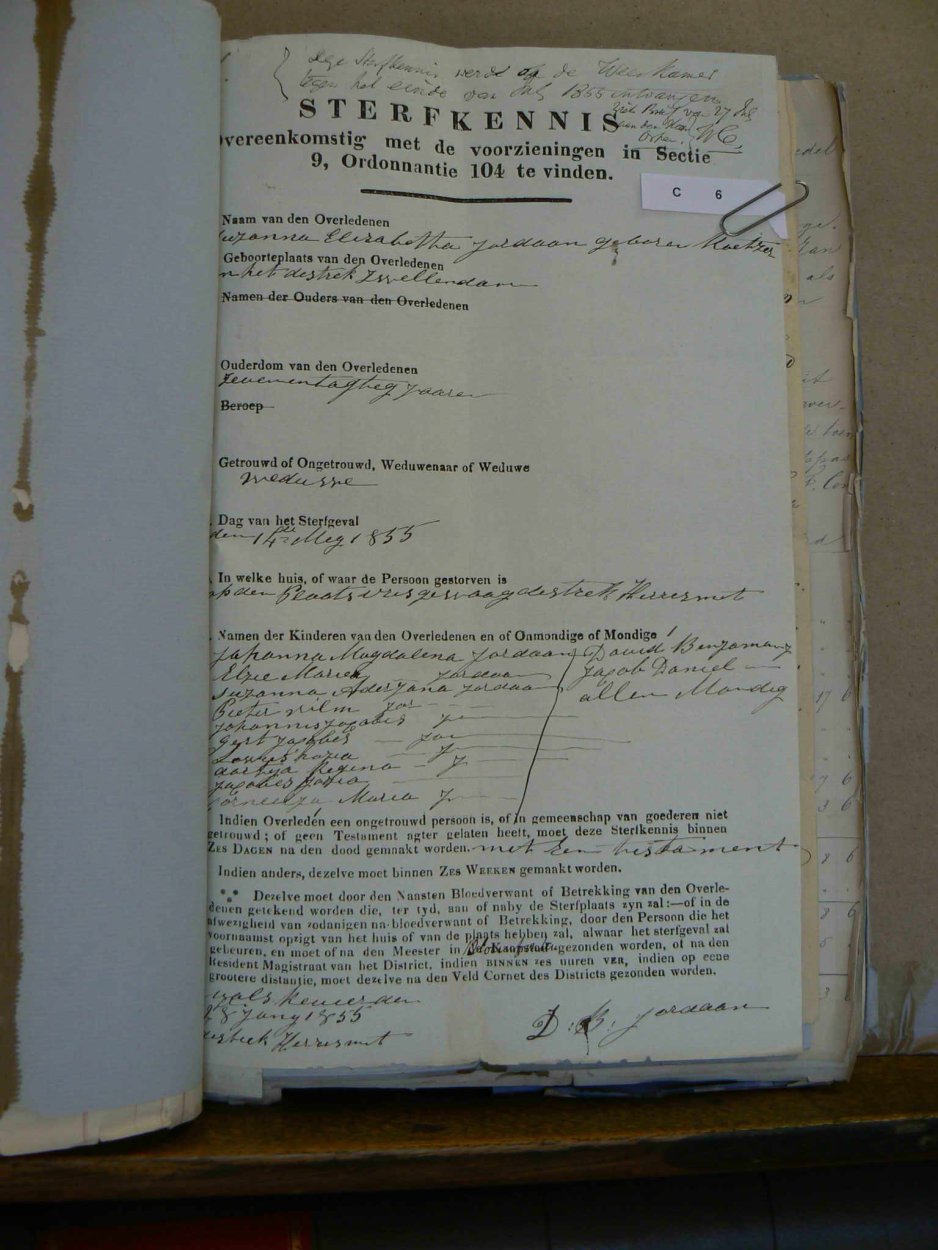 deze Sterfkennis werd op de Weeskamer
tegen het einde van July 1855 ontvangen
Zie Brief van 27 July
aan den Heer
WC.
STERFKENNIS
overeenkomstig met de voorzieningen in Sectie
9, Ordonnantie 104 te vinden.
C 6
Naam van den Overledenen
uzanna Elizabetha Jordaan geboren Koetzer
Geboorteplaats van den Overledenen
n het destrek Zwellendam
Namen der Ouders van den Overledenen
Ouderdom van den Overledenen
zevenentagteg jaaren
Beroep
Getrouwd of Ongetrouwd, Weduwenaar of Weduwe
Weduwe
. Dag van het Sterfgeval
den 14de Mey 1855
, In welke huis, of waar de Persoon gestorven is
op den Plaats vresgewaagd destrek Herresmet
. Namen der Kinderen van den Overledenen en of Onmondige of Mondige
Johanna Magdalena Jordaan David Benjamanz
Elzie Maria Jordaan Jacob Daniel
Suzanna Aderjana Jordaan allen Mondig
Pieter Wilm Jor
Johannis Jacobus J
Gert Jacobus Jor
J
Regina J
Jacobus
Cornelia Maria J
Indien Overleden een ongetrouwd persoon is, of in gemeenschap van goederen niet
getrouwd; of geen Testament agter gelaten heeft, moet deze Sterfkennis binnen
ZES DAGEN na den dood gemaakt worden. met een testament
Indien anders, dezelve moet binnen ZES WEEKEN gemaakt worden.
Dezelve moet door den Naasten Bloedverwant of Betrekking van den Overle-
denen getekend worden die, ter tyd, aan of naby de Sterfplaats zyn zal:—of in de
afwezigheid van zodanigen na-bloedverwant of Betrekking, door den Persoon die het
voornaamst opzigt van het huis of van de plaats hebben zal, alwaar het sterfgeval zal
gebeuren, en moet of na den Meester in de Kaapstad gezonden worden, of na den
Resident Magistraat van het District, indien BINNEN ZES UUREN VER, indien op eene
grootere distantie, moet dezelve na den Veld Cornet des Districts gezonden worden.
28 Juny 1855
destrek Herresmet
D: B: Jordaan